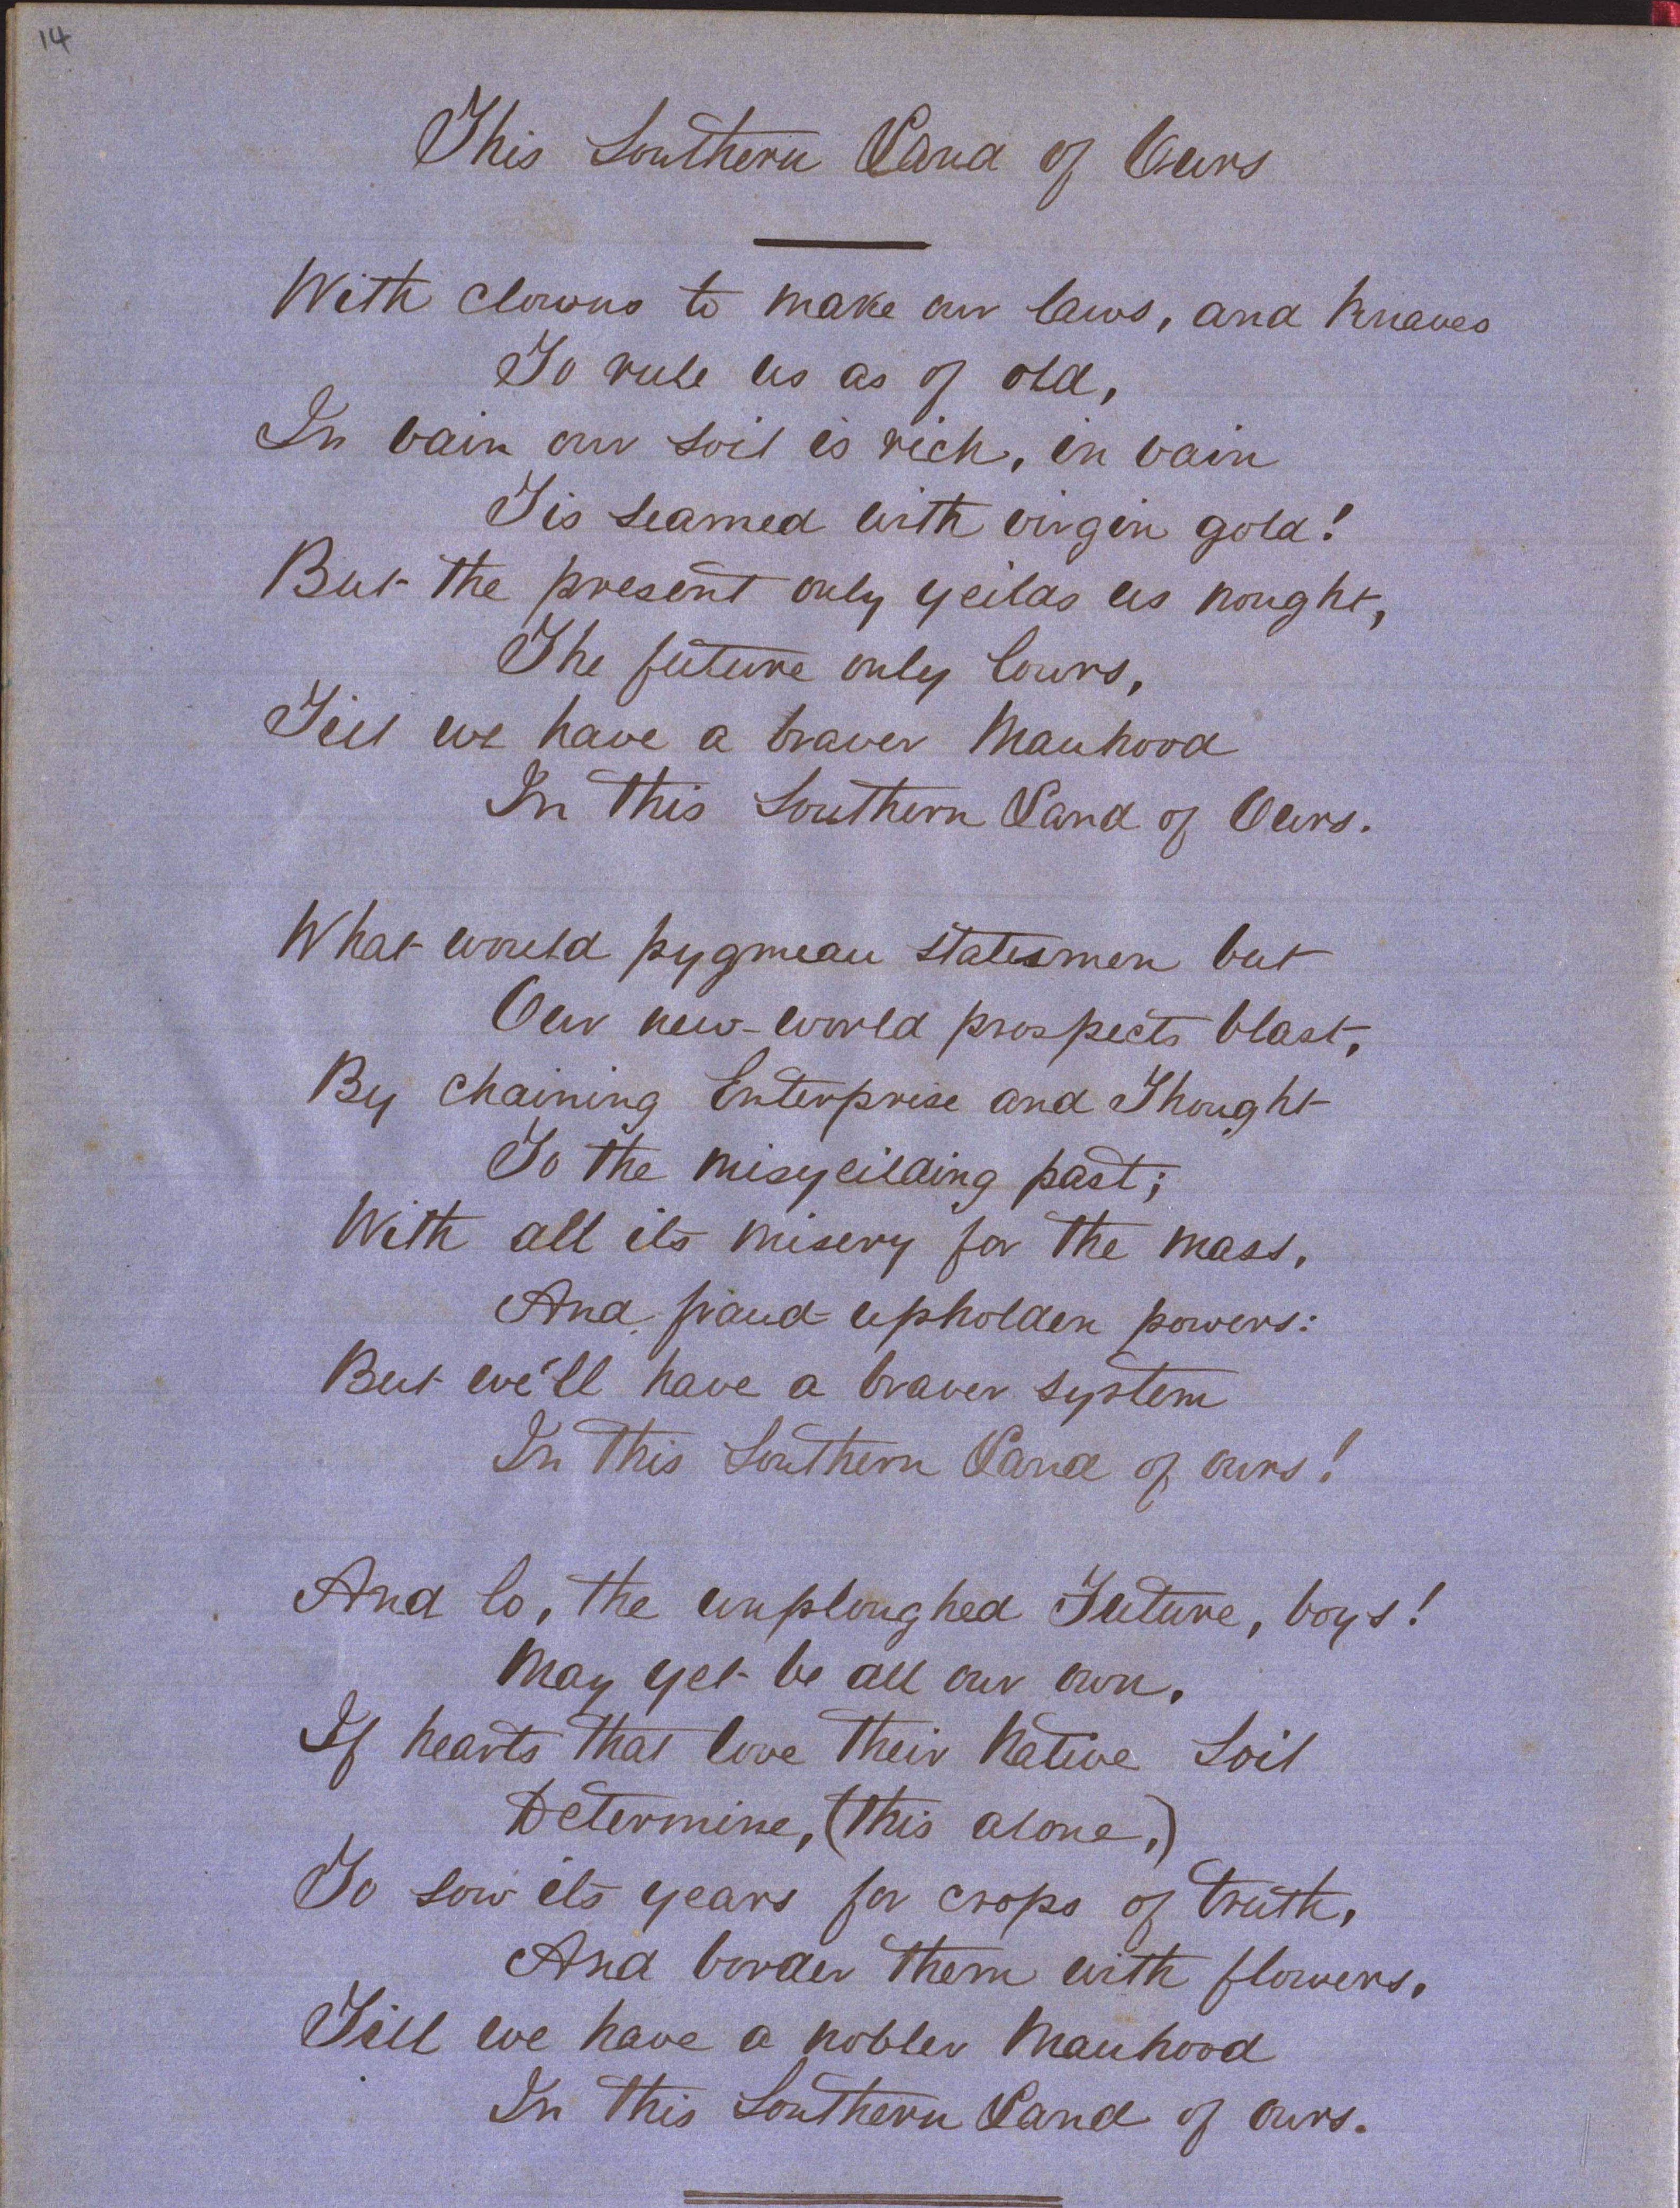 14
This Southern Land of Ours
With clowns to make our laws, and Knaves
To rule us as of old,
In vain our soil is rich, in vain
Tis seamed with virgin gold!
But the present only yeilds us nought,
The future only lours,
Till we have a braver Manhood
In this Southern Land of Ours.
What would pygmean statesmen but
Our new-world prospects blast,
By chaining Enterprise and Thought
To the misyeilding past;
With all its misery for the mass,
And fraud-upholden powers:
But we'll have a braver system
In this Southern Land of ours!
And lo, the unploughed Future, boys!
May yet be all our own,
If hearts that love their Native Soil
Determine, (this alone,)
To sow its years for crops of truth,
And border them with flowers,
Till we have a nobler Manhood
In this Southern Land of ours.